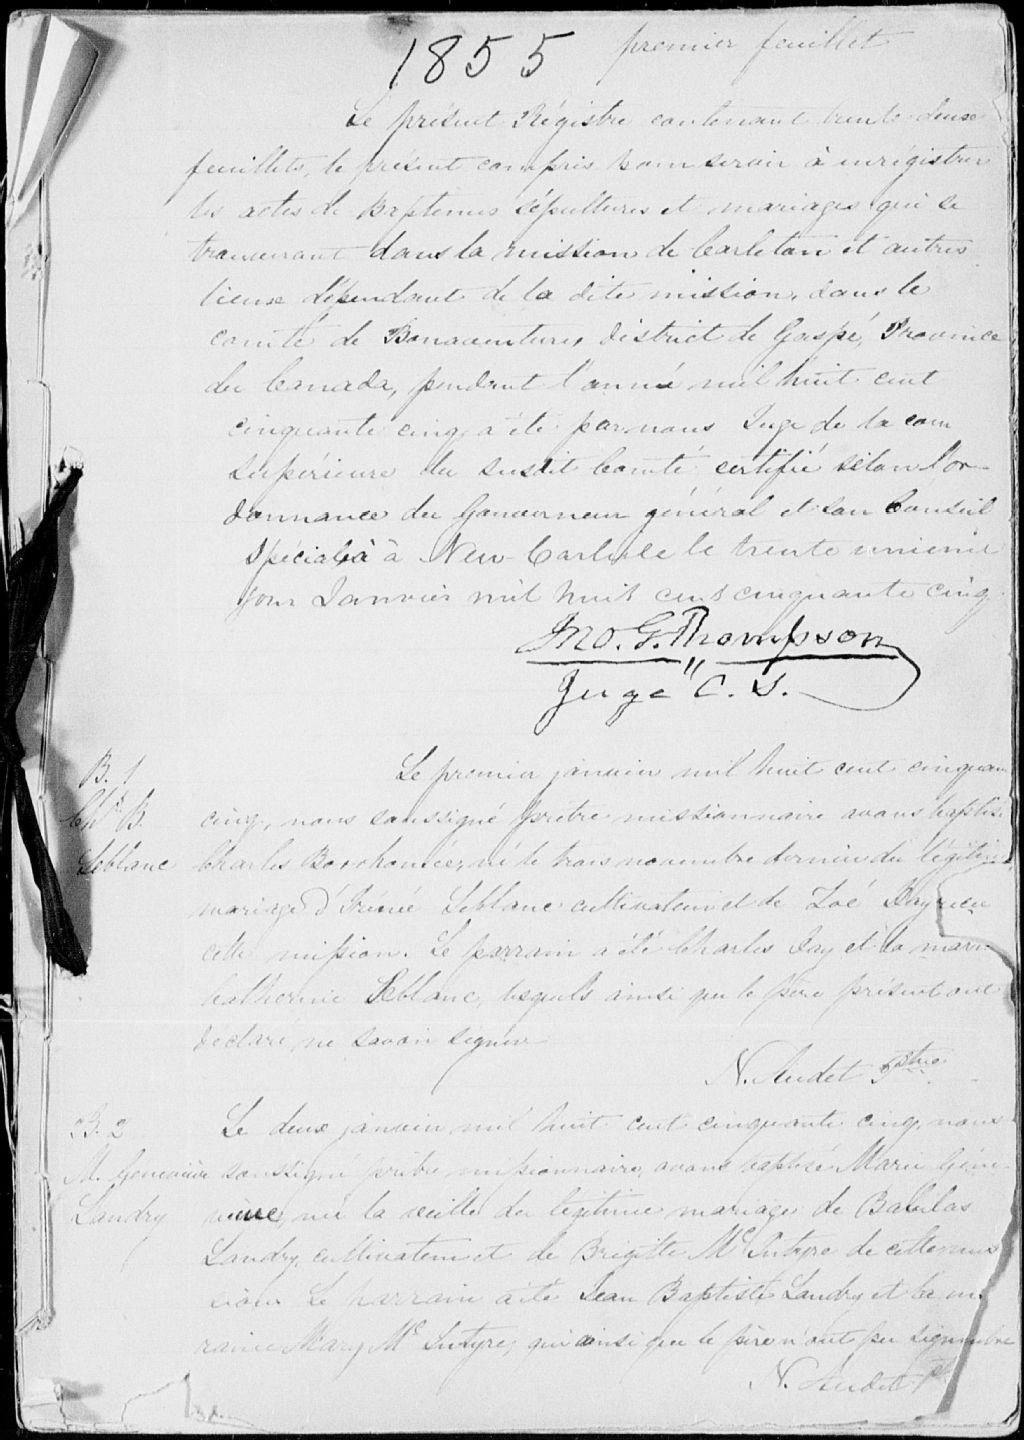 1855 premier feuillet
Le présent Régistre contenant trente-deux
feuillets, le présent compris pour servir à enrégistrer
les actes de Baptêmes sépultures et mariages qui se
trouveront dans la mission de Carleton et autres
lieux dépendant de la dite mission, dans le
comté de Bonaventure, district de Gaspé, Province
du Canada, pendant l'année mil huit cent
cinquante cinq, a été par nous Juge de la cour
supérieure du susdit Comté certifié selon l'or-
donnance du Gouverneur général et son Conseil
Spécial à New-Carlisle le trente unième
jour Janvier mil huit cent cinquante cinq.
Jno. G. Thompson
Juge C. S.
B. 1
Chs B.
Leblanc
Le premier janvier mil huit cent cinquan
cinq, nous soussigné prêtre missionnaire avons baptisé
Charles né le trois novembre dernier du légitime
mariage d'Irénée Leblanc cultivateur et de Zoé de
cette mission. Le parrain a été Charles Day et la marr
Catherine Leblanc, lesquels ainsi que le père présent ont
déclaré ne savoir signer
N. Audet Ptre
B. 2
M. Geneviève
Landry
Le deux janvier mil huit cent cinquante cinq, nous
soussigné prêtre missionnaire, avons baptisé Marie Gene-
viève, née la veille du légitime mariage de Babilas
Landry, cultivateur et de Brigitte Mc Intyre de cette mis
sion. Le parrain a été Jean Baptiste Landry et la m
raine Mary Mc Intyre, qui ainsi que le père n'ont pu signer
N. Audet Ptre